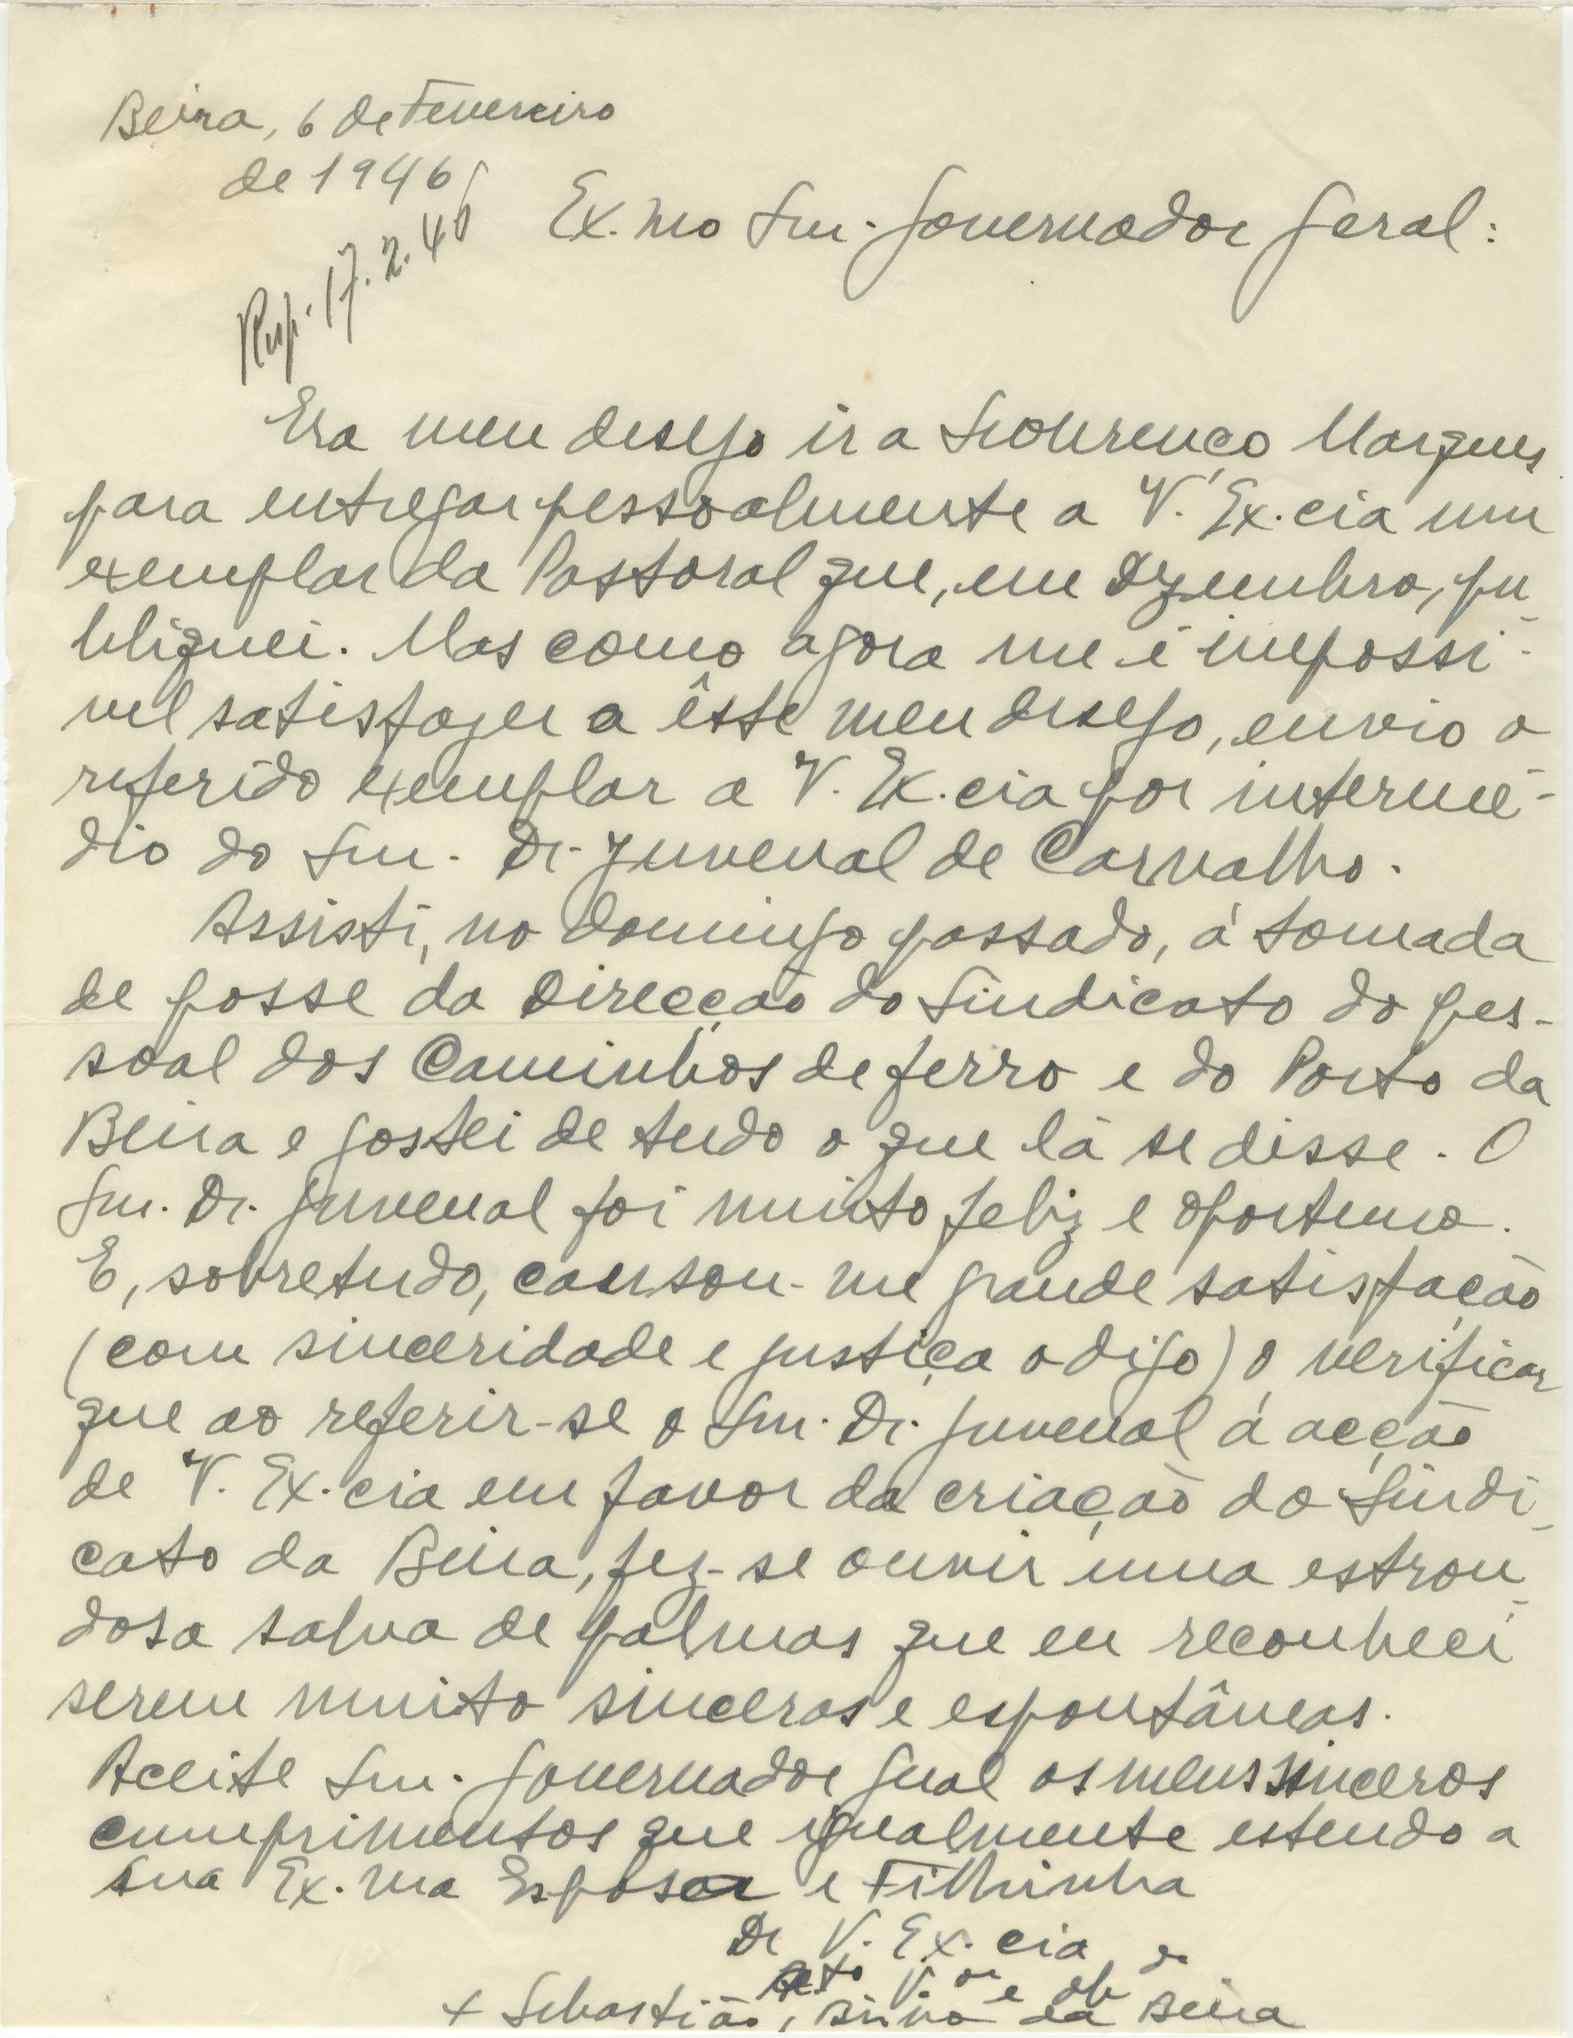 Beira, 6 de Fevereiro
de 1946
Resp. 17.2.46
Ex.mo Snr. Governador Geral:
Era meu desejo ir a Lourenço Marques
para entregar pessoalmente a V. Ex.cia um
exemplar da Pastoral que, em Dezembro, pu-
bliquei. Mas como agora me é impossi-
vel satisfazer a êste meu desejo, envio o
referido exemplar a V. Ex.cia por intermé-
dio do Snr. Dr. Juvenal de Carvalho.
Assisti, no domingo passado, á tomada
de posse da Direcção do Sindicato do pes-
soal dos Caminhos de ferro e do Porto da
Beira e gostei de tudo o que lá se disse. O
Snr. Dr. Juvenal foi muito feliz e oportuno.
E, sobretudo, causou-me grande satisfação
(com sinceridade e justiça o digo) o verificar
que ao referir-se o Snr. Dr. Juvenal á acção
de V. Ex.cia em favor da criação do Sindi-
cato da Beira, fez-se ouvir uma estron-
dosa salva de palmas que eu reconheci
serem muito sinceras e espontâneas.
Aceite Snr. Governador Geral os meus sinceros
cumprimentos que igualmente estendo a
sua Ex.ma Esposa e Filhinha
De V. Ex.cia
At.to V.or e ob.do
+ Sebastião, Bispo da Beira